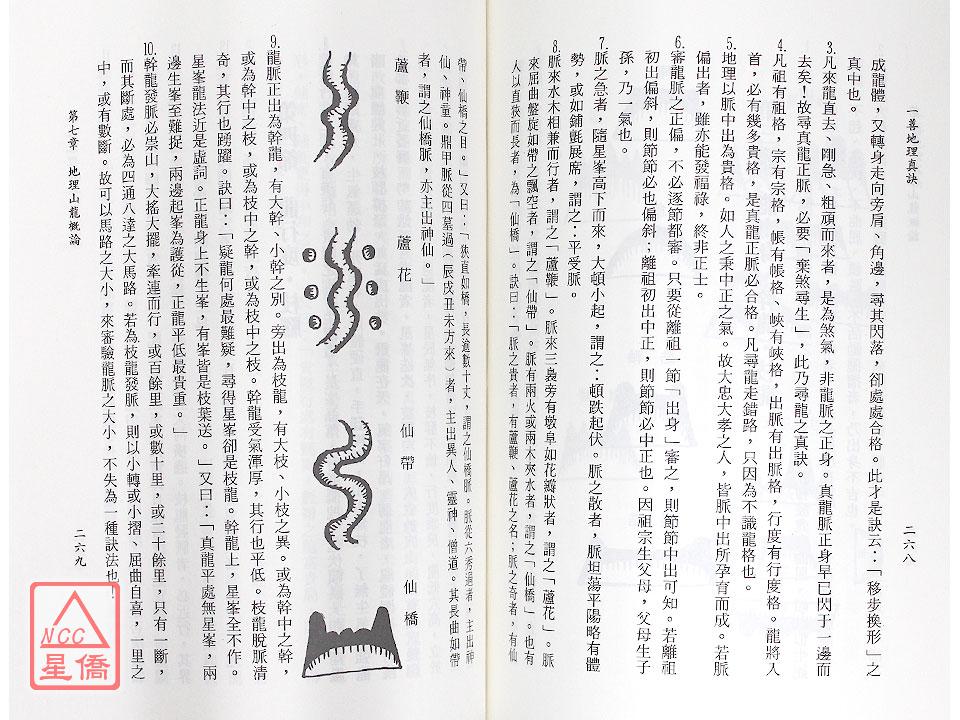 一善地理真訣
二六八
成龍體，又轉身走向旁肩、角邊，尋其閃落，卻處處合格。此才是訣云：「移步換形」之
真中也。
3.凡來龍直去、剛急、粗頑而來者，是為煞氣，非龍脈之正身。真龍脈正身早已閃于一邊而
去矣！故尋真龍正脈，必要「棄煞尋生」，此乃尋龍之真訣。
4.凡祖有祖格，宗有宗格，帳有帳格、峽有峽格，出脈有出脈格，行度有行度格。龍將入
首，必有幾多貴格，是真龍正脈必合格。凡尋龍走錯路，只因為不識龍格也。
5.地理以脈中出為貴格。如人之秉中正之氣。故大忠大孝之人，皆脈中出所孕育而成。若脈
偏出者，雖亦能發福祿，終非正士。
6.審龍脈之正偏，不必逐節都審。只要從離祖一節「出身」審之，則節節中出可知。若離祖
初出偏斜，則節節必也偏斜；離祖初出中正，則節節必中正也。因祖宗生父母，父母生子
孫，乃一氣也。
7.脈之急者，隨星峯高下而來，大頓小起，謂之：頓跌起伏。脈之散者，脈坦蕩平陽略有體
勢，或如鋪氈展席，謂之：平受脈。
8.脈來水木相兼而行者，謂之「蘆鞭」。脈來三裊旁有墩阜如花瓣狀者，謂之「蘆花」。脈
來屈曲盤旋如帶之飄空者，謂之「仙帶」。脈有兩火或兩木夾水者，謂之「仙橋」。也有
人以直狹而長者，為「仙橋」。訣曰：「脈之貴者，有蘆鞭、蘆花之名；脈之奇者，有仙
帶、仙橋之目。」又曰：「狹直如橋，長逾數十丈，謂之仙橋脈。脈從六秀過者，主出神
仙、神童。鼎甲脈從四墓過（辰戌丑未方來）者，主出異人、靈神、僧道。其長曲如帶
者，謂之仙橋脈，亦主出神仙。」
蘆鞭
蘆花
仙帶
仙橋
9.龍脈正出為幹龍，有大幹、小幹之別。旁出為枝龍，有大枝、小枝之異。或為幹中之幹，
或為幹中之枝，或為枝中之幹，或為枝中之枝。幹龍受氣渾厚，其行也平低。枝龍脫脈清
奇，其行也踴躍。訣曰：「疑龍何處最難疑，尋得星峯卻是枝龍。幹龍上，星峯全不作。
星峯龍法近是虛詞。正龍身上不生峯，有峯皆是枝葉送。」又曰：「真龍平處無星峯，兩
邊生峯至難捉，兩邊起峯為護從，正龍平低最貴重。」
10.幹龍發脈必崇山，大搖大擺，牽連而行，或百餘里，或數十里，或二十餘里，只有一斷，
而其斷處，必為四通八達之大馬路。若為枝龍發脈，則以小轉或小摺、屈曲自喜，一里之
中，或有數斷。故可以馬路之大小，來審驗龍脈之大小，不失為一種訣法也！
第七章　地理山龍概論
二六九
NCC
星僑